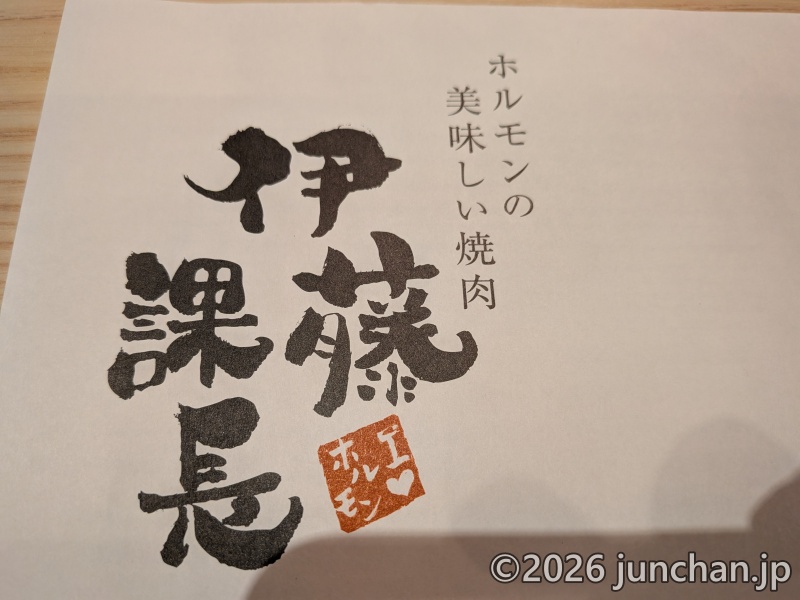 ホルモンの
美味しい焼肉
伊藤
課長
ホルモン
©2026 junchan.jp